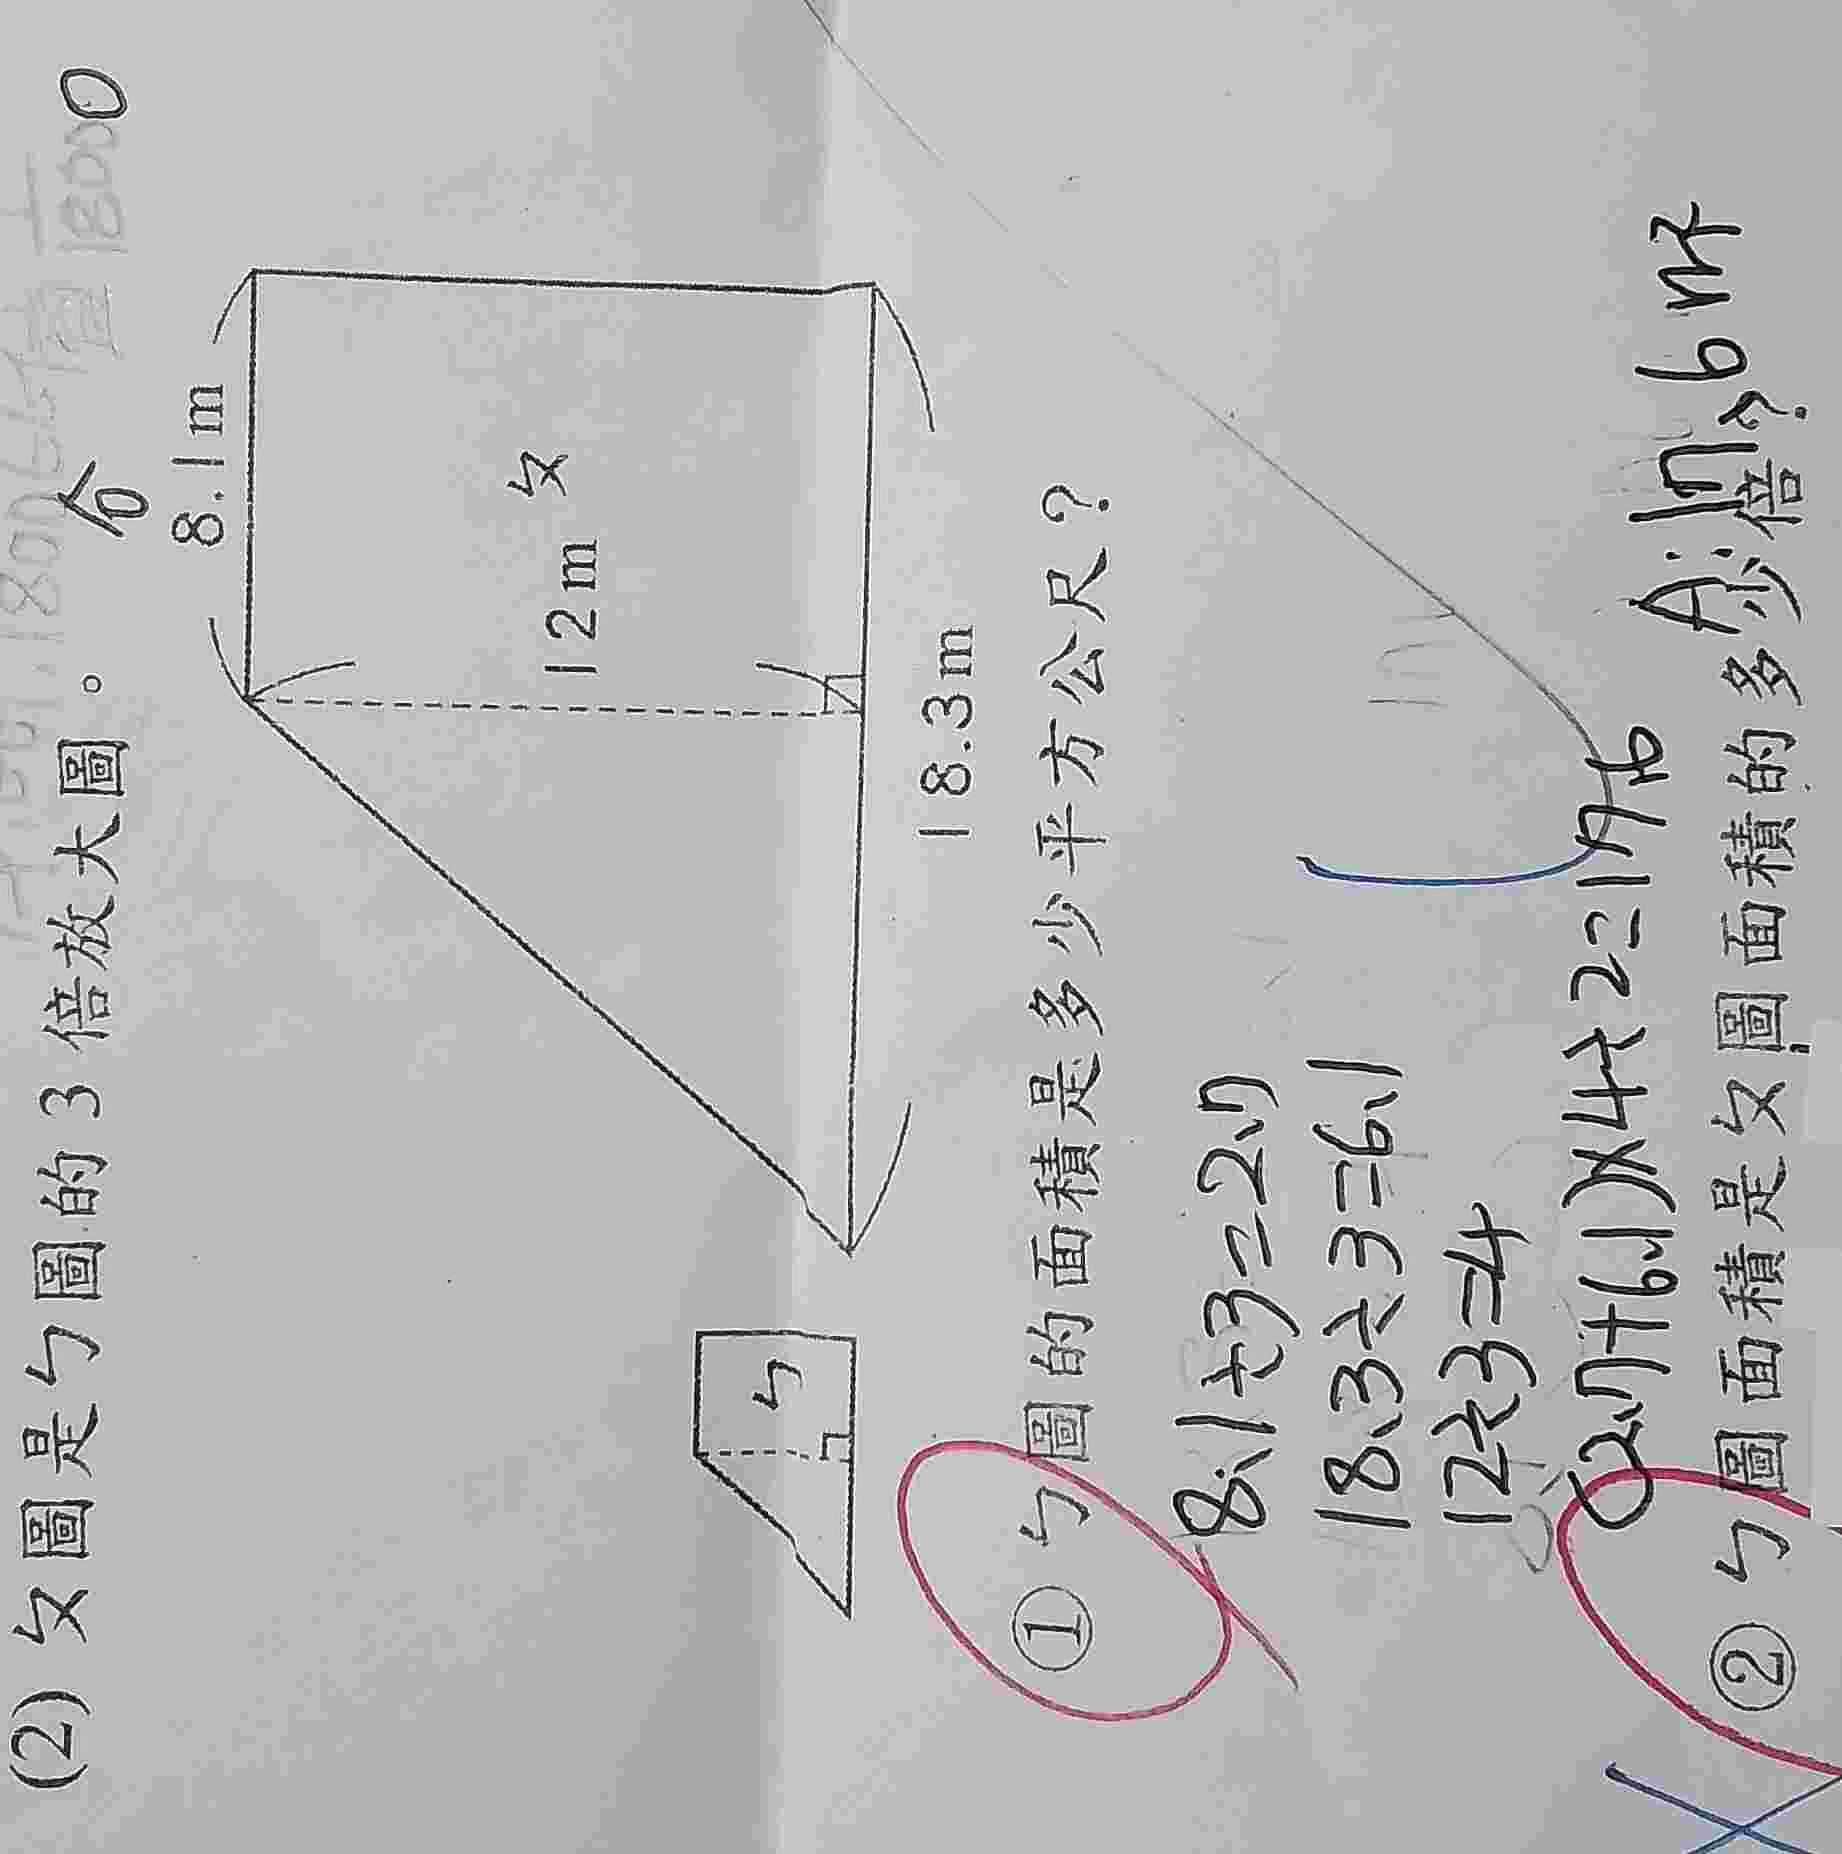 (2) ㄆ圖是ㄅ圖的3倍放大圖。
8.1m
12m
ㄆ
ㄅ
18.3m
① ㄅ圖的面積是多少平方公尺？
8.1÷3=2.7
18.3÷3=6.1
12÷3=4
(2.7+6.1)×4÷2=17.6
A:17.6㎡
② ㄅ圖面積是ㄆ圖面積的多少倍？